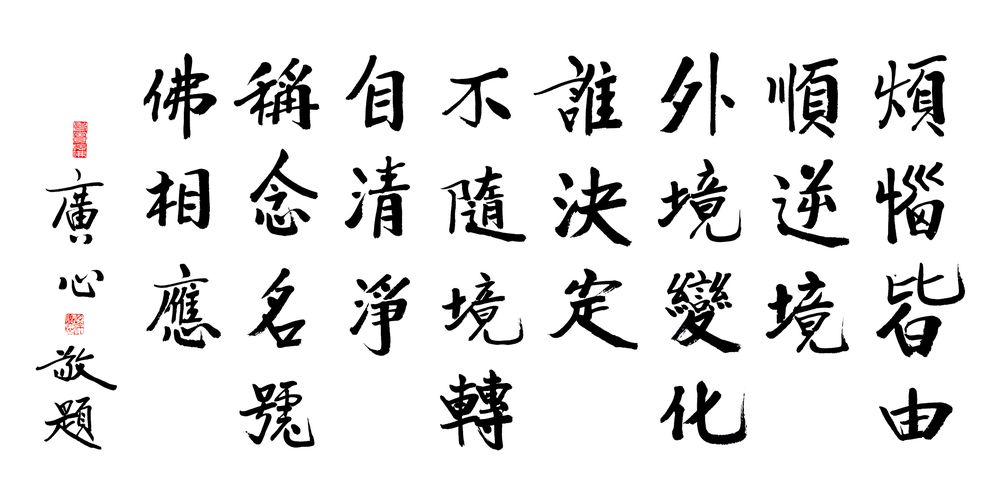 煩惱皆由
順逆境
外境變化
誰決定
不隨境轉
自清淨
稱念名號
佛相應
廣心敬題